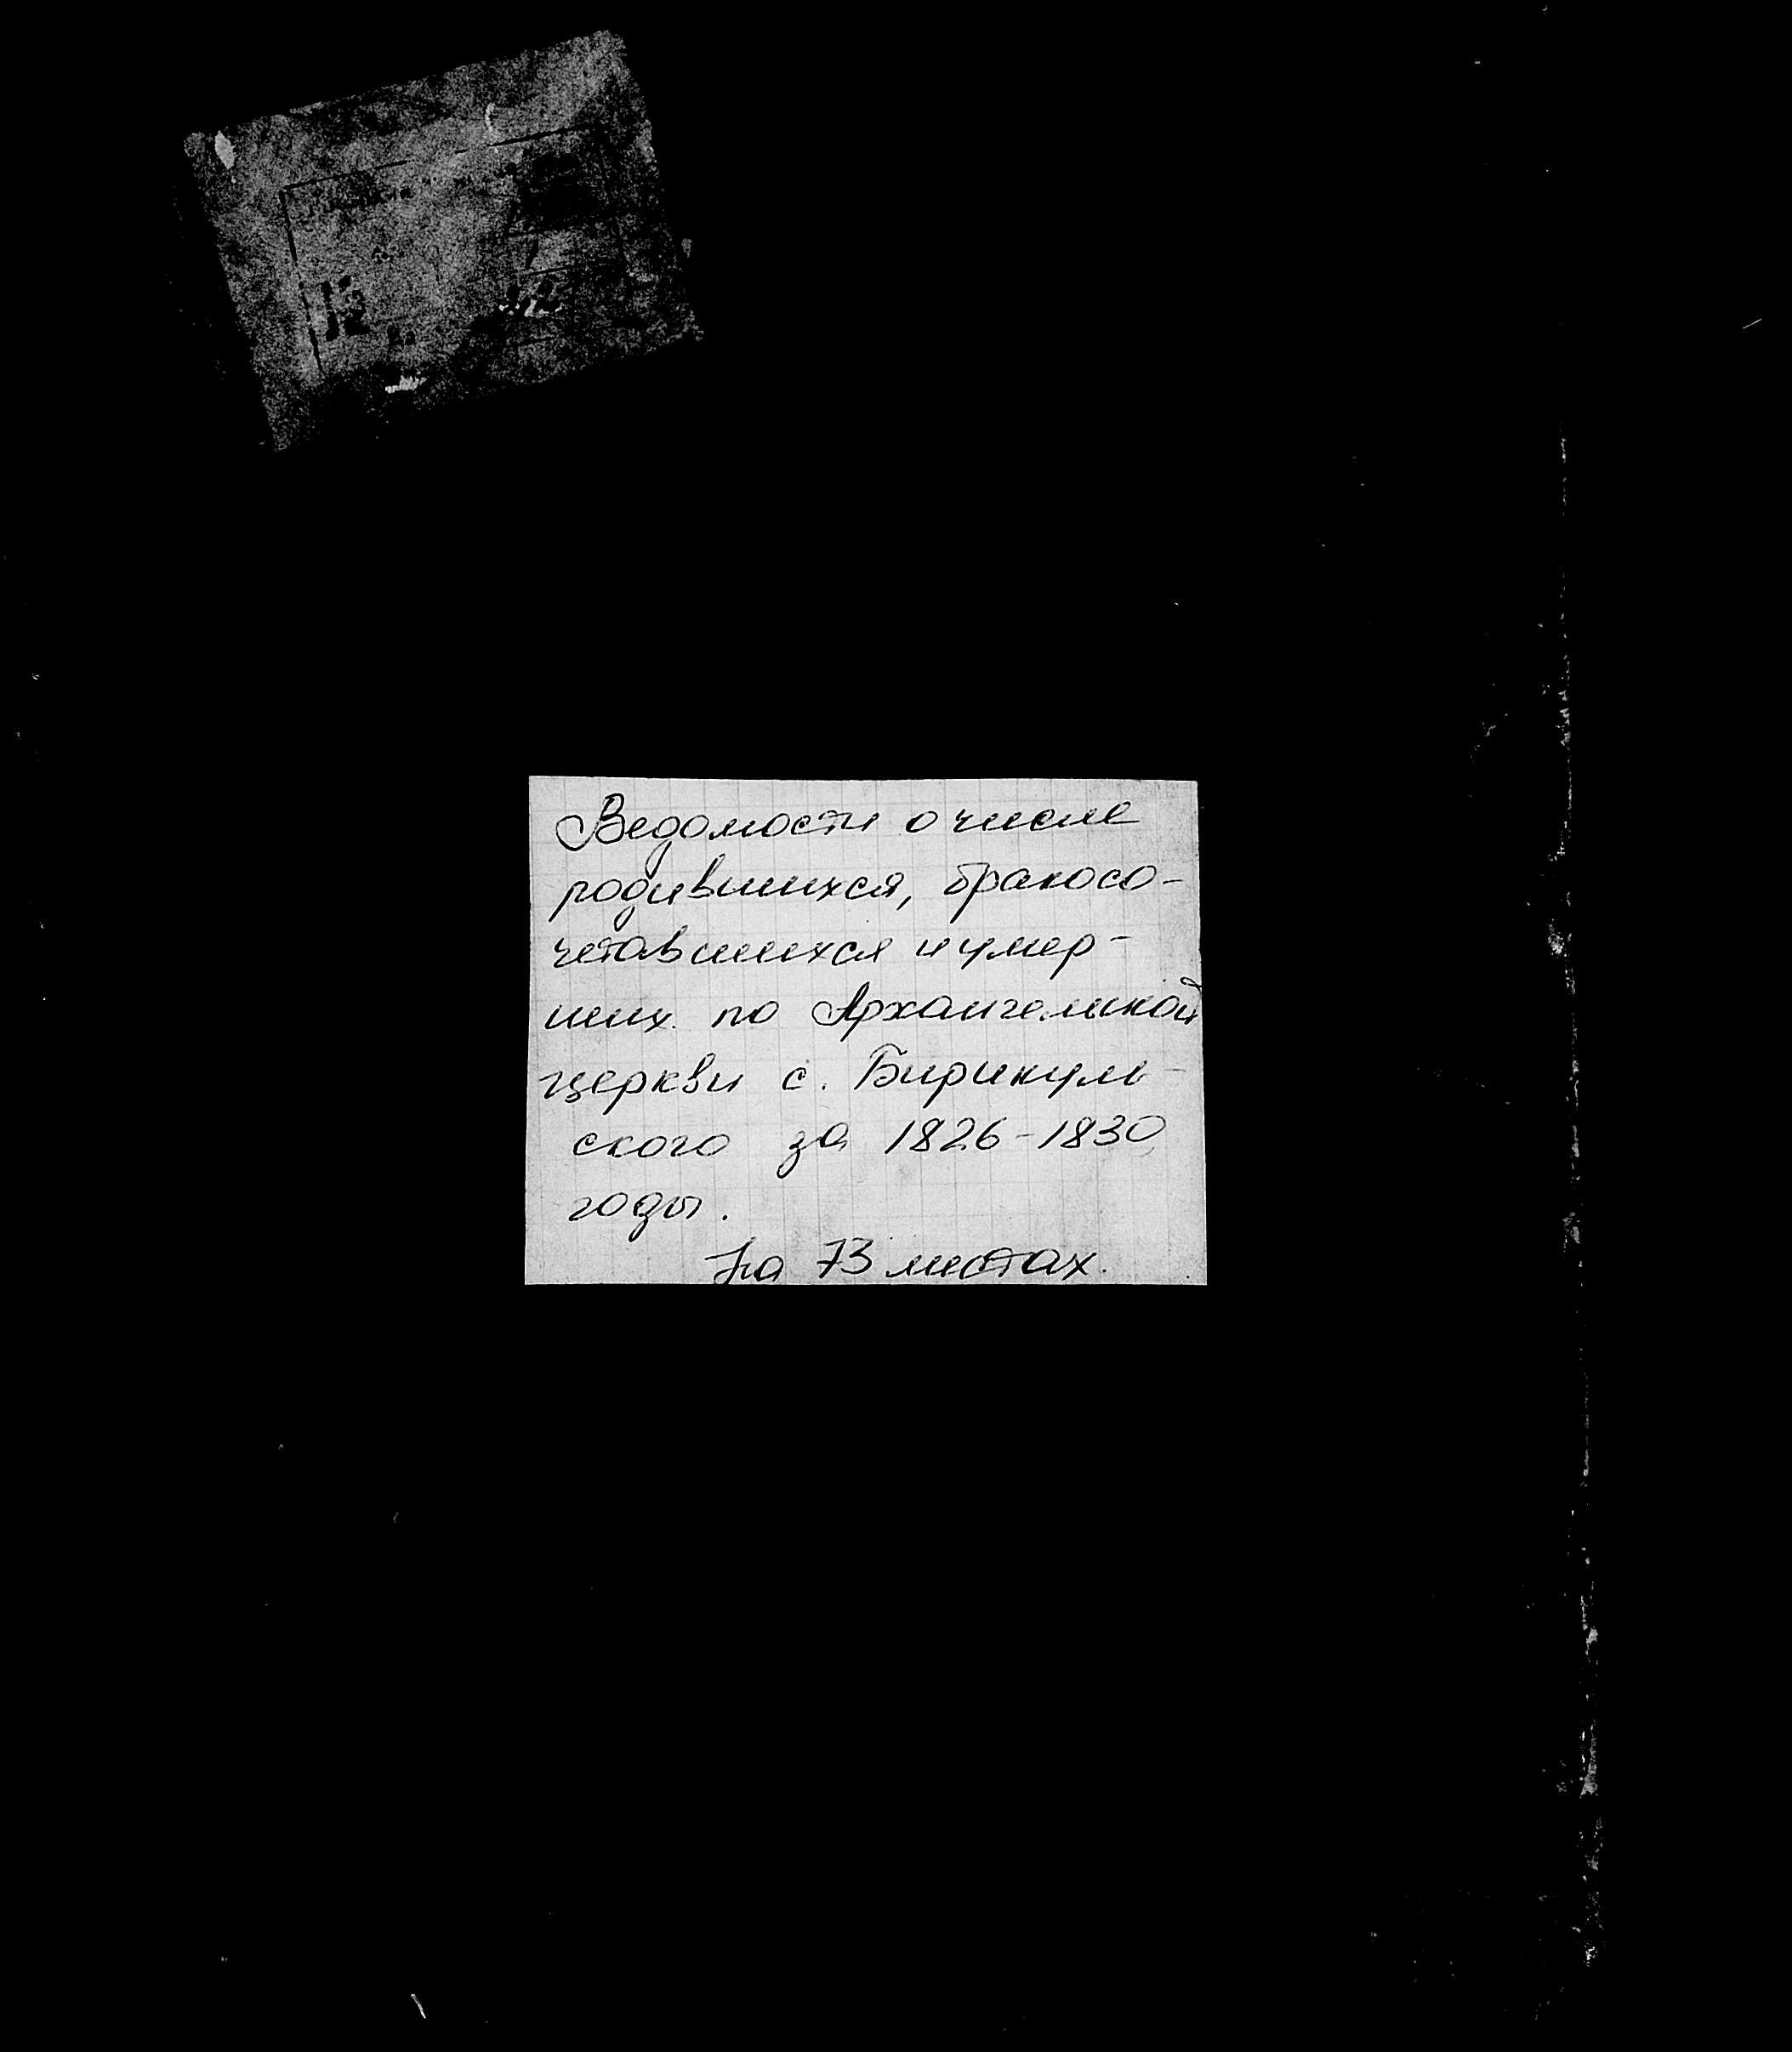 Ведомости о числе
родившихся, бракосо-
четавшихся и умер-
ших по Архангельской
церкви с. Бирикуль-
ского за 1826-1830
годы.
На 73 листах.